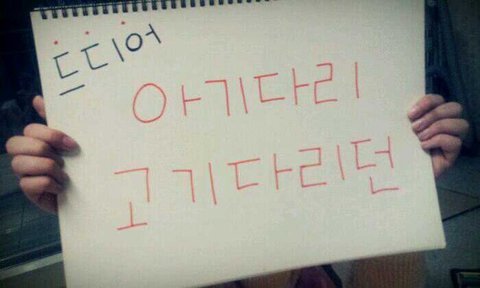 드디어
아기다리
고기다리던